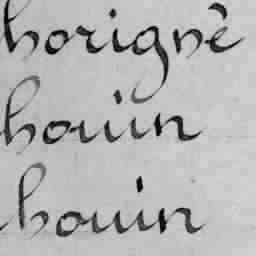 horigné
houin
houin